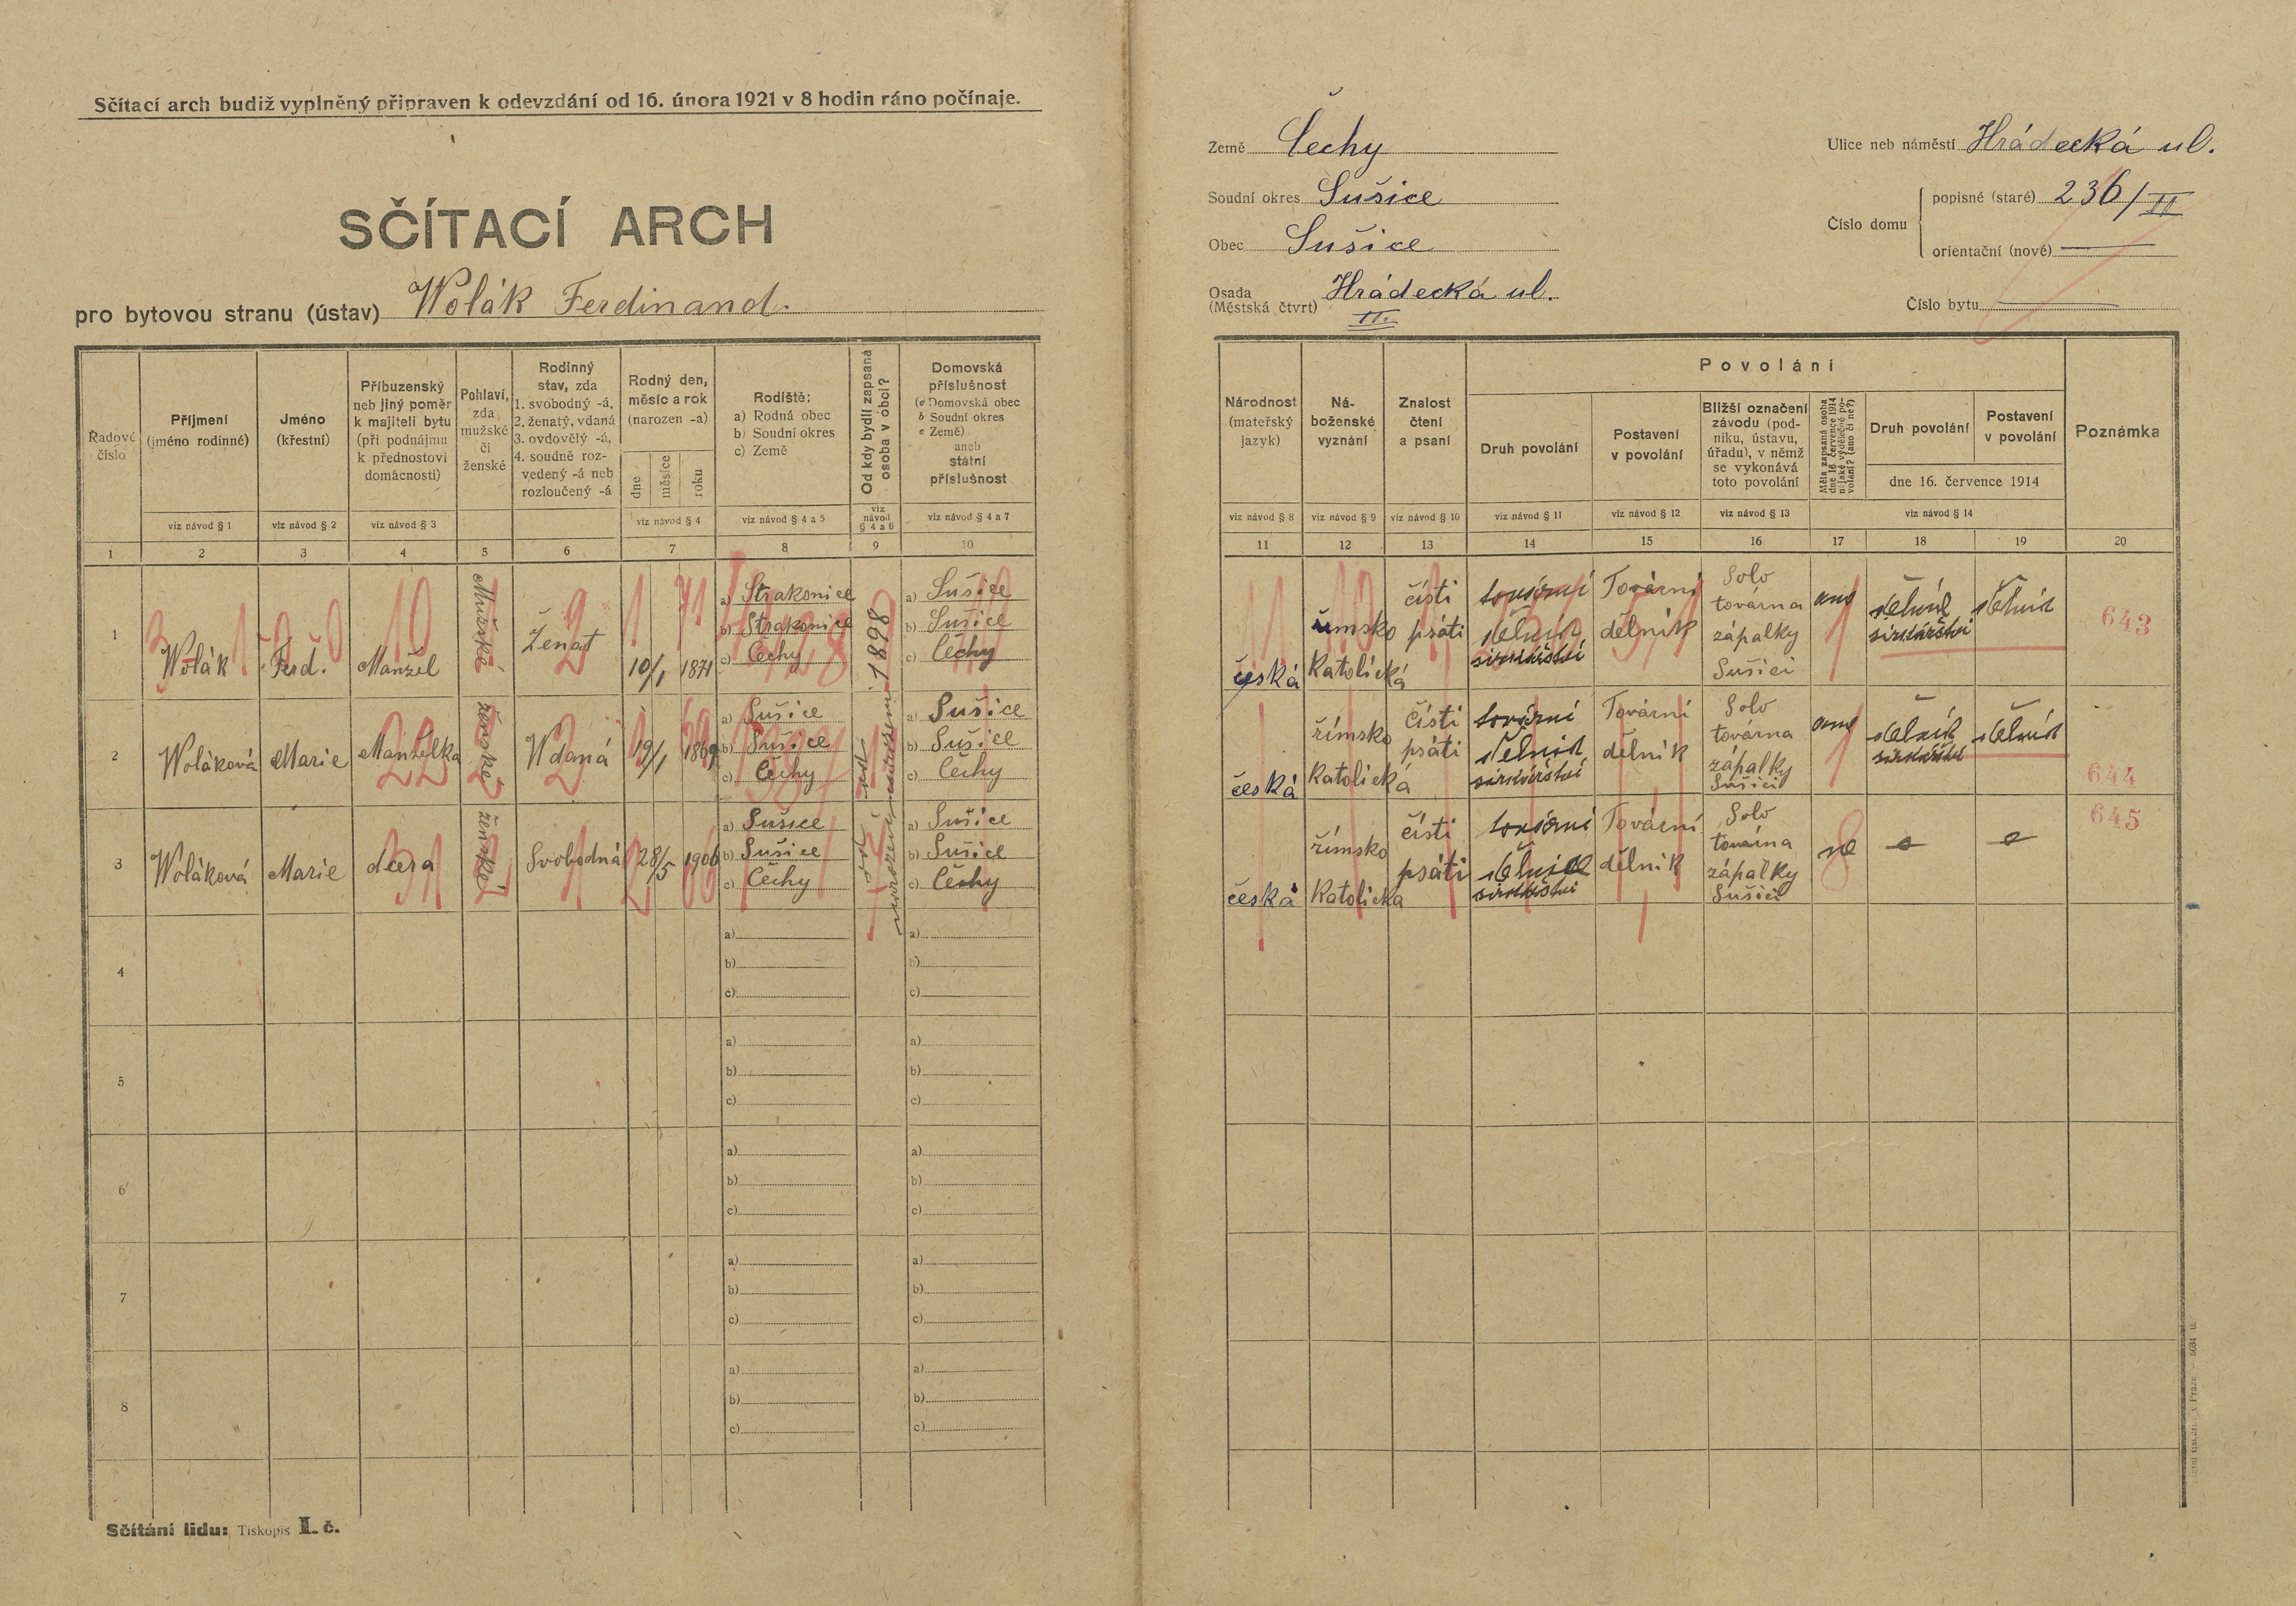 Sčítací arch budiž vyplněný připraven k odevzdání od 16. února 1921 v 8 hodin ráno počínaje.
SČÍTACÍ ARCH
pro bytovou stranu (ústav) Wolák Ferdinand.
Řadové číslo
Příjmení
(jméno rodinné)
viz návod § 1
Jméno
(křestní)
viz návod § 2
Příbuzenský
neb jiný poměr
k majiteli bytu
(při podnájmu
k přednostovi
domácnosti)
viz návod § 3
Pohlaví,
zda
mužské
či
ženské
Rodinný
stav, zda
1. svobodný -á,
2. ženatý, vdaná
3. ovdovělý -á,
4. soudně roz-
vedený -á neb
rozloučený -á
Rodný den,
měsíc a rok
(narozen -a)
dne
měsíce
roku
viz návod § 4
Rodiště:
a) Rodná obec
b) Soudní okres
c) Země
viz návod § 4 a 5
Od kdy bydlí zapsaná
osoba v obci?
viz
návod
§ 4 a 6
Domovská
příslušnost
(a Domovská obec
b Soudní okres
c Země)
aneb
státní
příslušnost
viz návod § 4 a 7
1 2 3 4 5 6 7 8 9 10
1 Wolák Ferd. Manžel Mužské Ženat 10/1 1871
a) Strakonice
b) Strakonice
c) Čechy
1898
a) Sušice
b) Sušice
c) Čechy
2 Woláková Marie Manželka ženské Wdaná 19/1 1869
a) Sušice
b) Sušice
c) Čechy
od narození
a) Sušice
b) Sušice
c) Čechy
3 Woláková Marie dcera ženské Svobodná 28/5 1906
a) Sušice
b) Sušice
c) Čechy
od narození
a) Sušice
b) Sušice
c) Čechy
4
a)
b)
c)
a)
b)
c)
5
a)
b)
c)
a)
b)
c)
6
a)
b)
c)
a)
b)
c)
7
a)
b)
c)
a)
b)
c)
8
a)
b)
c)
a)
b)
c)
Sčítání lidu: Tiskopis I. č.
Země Čechy
Soudní okres Sušice
Obec Sušice
Osada
(Městská čtvrt) Hrádecká ul.
II.
Ulice neb náměstí Hrádecká ul.
Číslo domu
popisné (staré) 236/II
orientační (nové) —
Číslo bytu —
Národnost
(mateřský
jazyk)
viz návod § 8
Ná-
boženské
vyznání
viz návod § 9
Znalost
čtení
a psaní
viz návod § 10
Povolání
Druh povolání
viz návod § 11
Postavení
v povolání
viz návod § 12
Bližší označení
závodu (pod-
niku, ústavu,
úřadu), v němž
se vykonává
toto povolání
viz návod § 13
Měla zapsaná osoba
dne 16 července 1914
nějaké výdělečné po-
volání? (ano či ne?)
Druh povolání
Postavení
v povolání
dne 16. července 1914
viz návod § 14
Poznámka
11 12 13 14 15 16 17 18 19 20
česká
římsko
katolická
čísti
psáti
tovární
dělník
sirkářství
Tovární
dělník
Solo
továrna
zápalky
Sušici
ano
dělník
sirkářství
dělník
643
česká
římsko
katolická
čísti
psáti
tovární
dělník
sirkářství
Tovární
dělník
Solo
továrna
zápalky
Sušici
ano
dělník
sirkářství
dělník
644
česká
římsko
katolická
čísti
psáti
tovární
dělnice
sirkářství
Tovární
dělník
Solo
továrna
zápalky
Sušici
ne
645